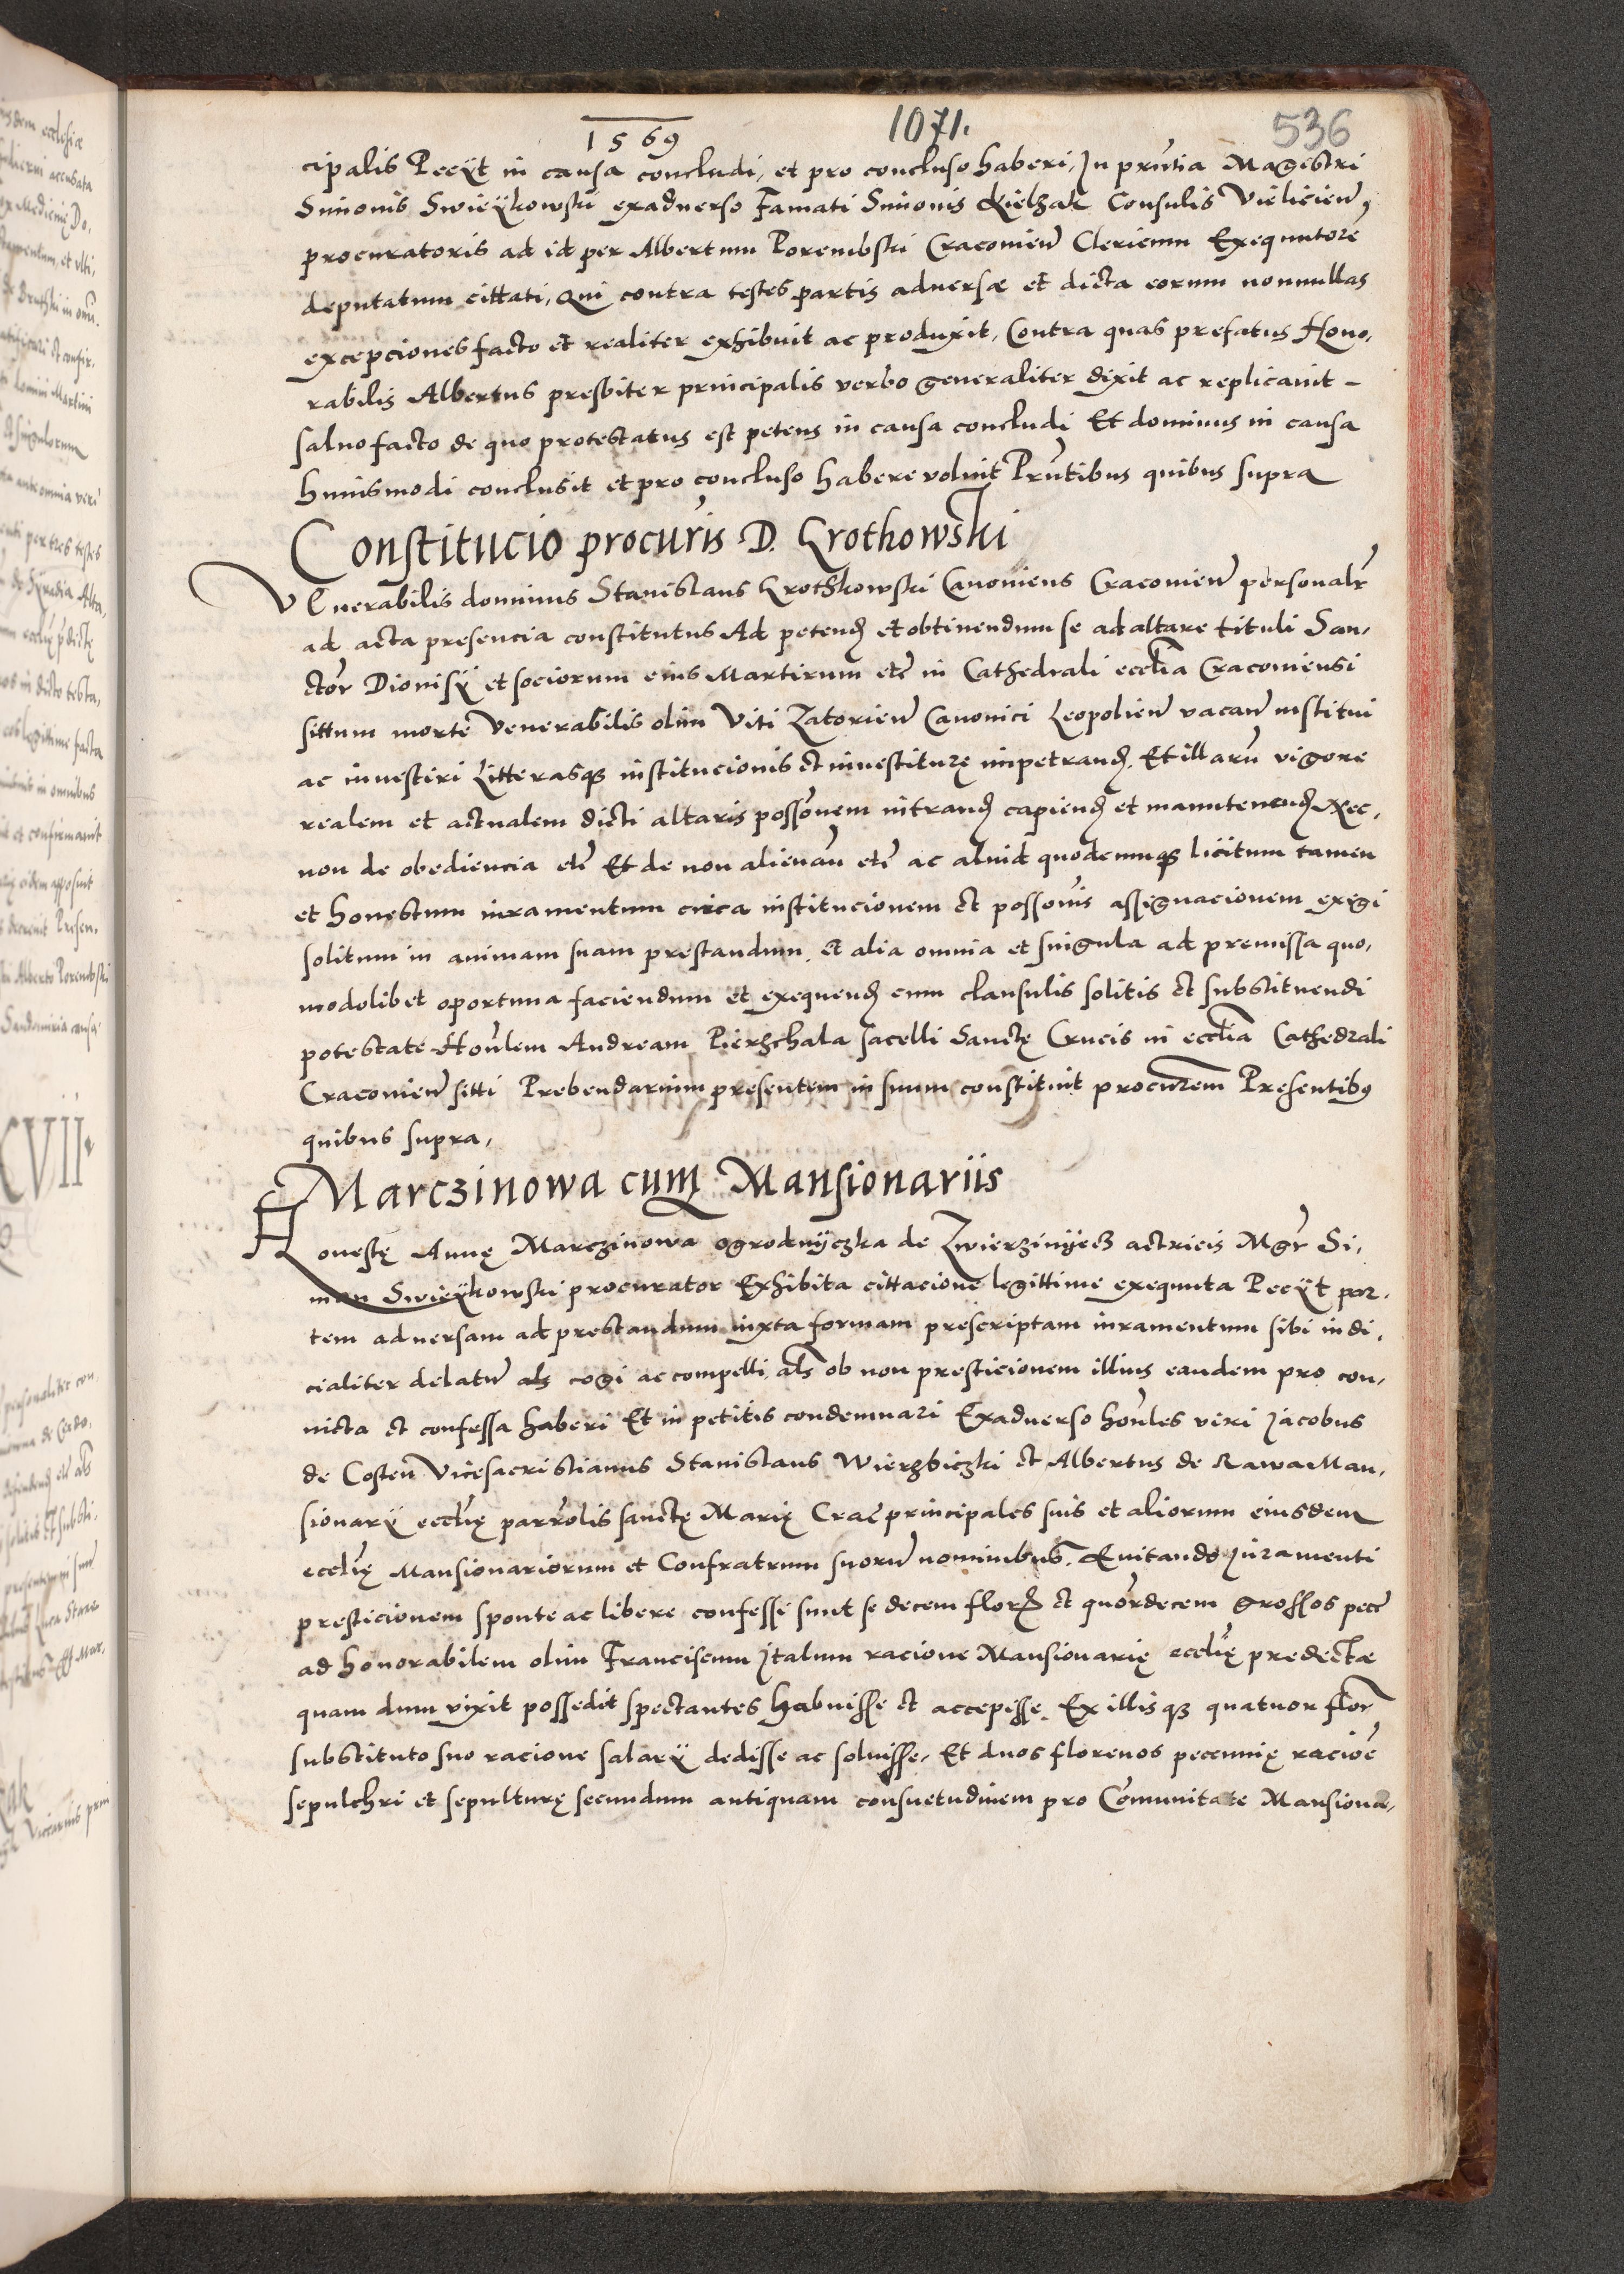 1569
1071.
536
cipalis Pecÿt in causa concludi, et pro concluso haberi, In prñtia Magistri
Simonis Swieÿkowski exaduerso Famati Simonis Kielzak Consulis Vielicień,
procuratoris ad id per Albertum Porembski Cracovień Clericum Exequutorē
deputatum cittati, Qui contra testes partis aduersæ et dicta eorum nonnullas
excepciones facto et realiter exhibuit ac produxit, Contra quas prefatus Hono,
rabilis Albertus presbiter principalis verbo generaliter dixit ac replicauit –
saluo facto de quo protestatus est petens in causa concludi Et dominus in causa
huiusmodi conclusit et pro concluso habere voluit Prñtibus quibus supra
Constitucio procuris D. Krothowski
VEnerabilis dominus Stanislaus Krothkowski Canonicus Cracovień personalr
ad acta presencia constitutus Ad petend et obtinendum se ad altare tituli San,
ctor Dionisÿ et sociorum eius Martirum etc in Cathedrali ecclia Cracouiensi
sittum morte Venerabilis olim Viti Zatorień Canonici Leopolień vacań institui
ac inuestiri Litterasq3 institucionis et inuestiturę impetrand, Et illarū vigore
realem et actualem dicti altaris possõnem intrand capiend et manutenend Nec,
non de obediencia etc Et de non alienań etc ac aluid quodcumq3 licitum tamen
et honestum iuramentum circa institucionem et possõnis assignacionem exigi
solitum in animam suam prestandum, et alia omnia et singula ad premissa quo,
modolibet oportuna faciendum et exequend cum clausulis solitis et substituendi
potestate Honlem Andream Pierzchala sacelli Sanctę Crucis in ecclia Cathedrali
Cracovień sitti Prebendarium presentem in suum constituit procurem Presentib9
quibus supra,
Marczinowa cum Mansionariis
Honestę Annę Marczinowa ogrodnÿczka de Zwierzinÿecz actricis Mgr Si,
mon Swieÿkowski procurator Exhibita cittacione legittime exequuta Pecÿt par,
tem aduersam ad prestandum iuxta formam prescriptam iuramentum sibi iudi,
cialiter delatū als cogi ac compelli, als ob non presticionem illius eandem pro con,
uicta et confessa haberi Et in petitis condemnari Exaduerso honles viri Jacobus
de Costeń Vicesacristianus Stanislaus Wierzbiczki et Albertus de Rawa Man,
sionarÿ ecclię parrolis sanctę Marię Crac principales suis et aliorum eiusdem
ecclię Mansionariorum et Confratrum suorū nominibus, Euitando Juramenti
presticionem sponte ac libere confessi sunt se decem flor et quordecem grossos pecc
ad honorabilem olim Franciscum Italum racione Mansionarię ecclię predictæ
quam dum vixit possedit spectantes habuisse et accepisse, Ex illisq3 quatuor flor
substituto suo racione salarÿ dedisse ac soluisse, Et duos florenos pecunnię racioē
sepulchri et sepulturę secundum antiquam consuetudinem pro Comunitate Mansiona,